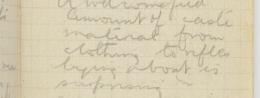 amount of waste
material from
clothing to rifles
lying about is
surprising